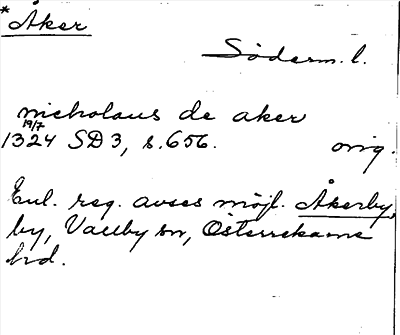 * Åker
Söderm. l.
nicholaus de aker
19/7
1324 SD3, s. 656. orig.
Enl. reg. avses möjl. Åkerby,
by, Vallby sn, Österrekarne
hd.